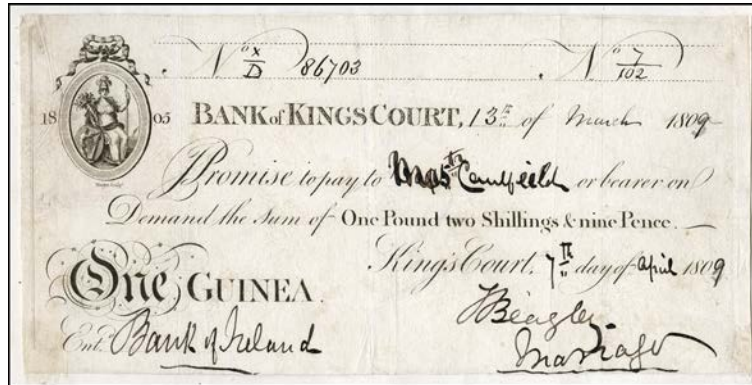 No x/D 86703 . No 7/102
18 05 BANK of KINGS COURT, 13th of March 1809
Promise to pay to Caulfield or bearer on
Demand the Sum of One Pound two Shillings & nine Pence.
Kings Court, 7th day of April 1809
One GUINEA.
J Beagley
Entd. Bank of Ireland
Manager